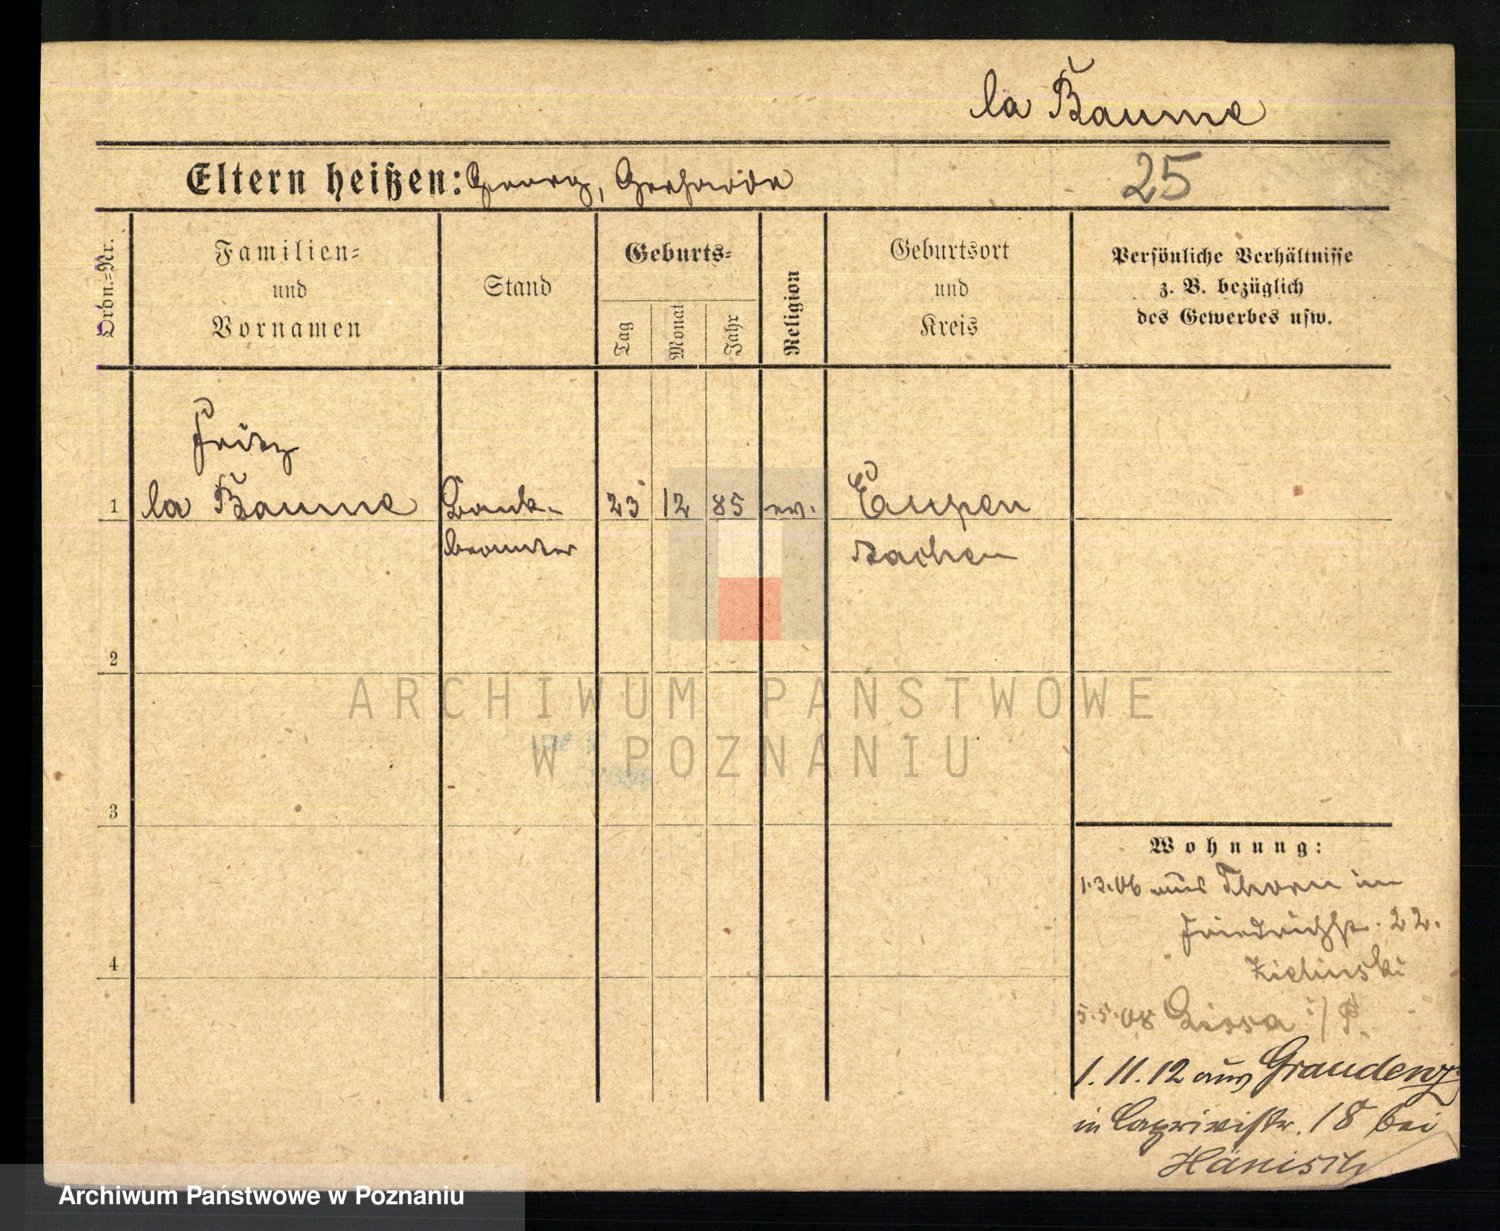 la Baume
Eltern heißen: Georg, Gerharda
25
Ordn.-Nr.
Familien-
und
Vornamen
Stand
Geburts-
Tag
Monat
Jahr
Religion
Geburtsort
und
Kreis
Persönliche Verhältnisse
z. B. bezüglich
des Gewerbes usw.
Fritz
1 la Baume Bank- 23 12 85 ev. Eupen
beamter Aachen
2
ARCHIWUM PAŃSTWOWE
W POZNANIU
3
Wohnung:
1.3.06 aus Thorn in
Friedrichstr. 22.
Zielinski
4
5.5.08 Lissa i/P.
1.11.12 aus Graudenz
in Caprivistr. 18 bei
Hänisch
Archiwum Państwowe w Poznaniu